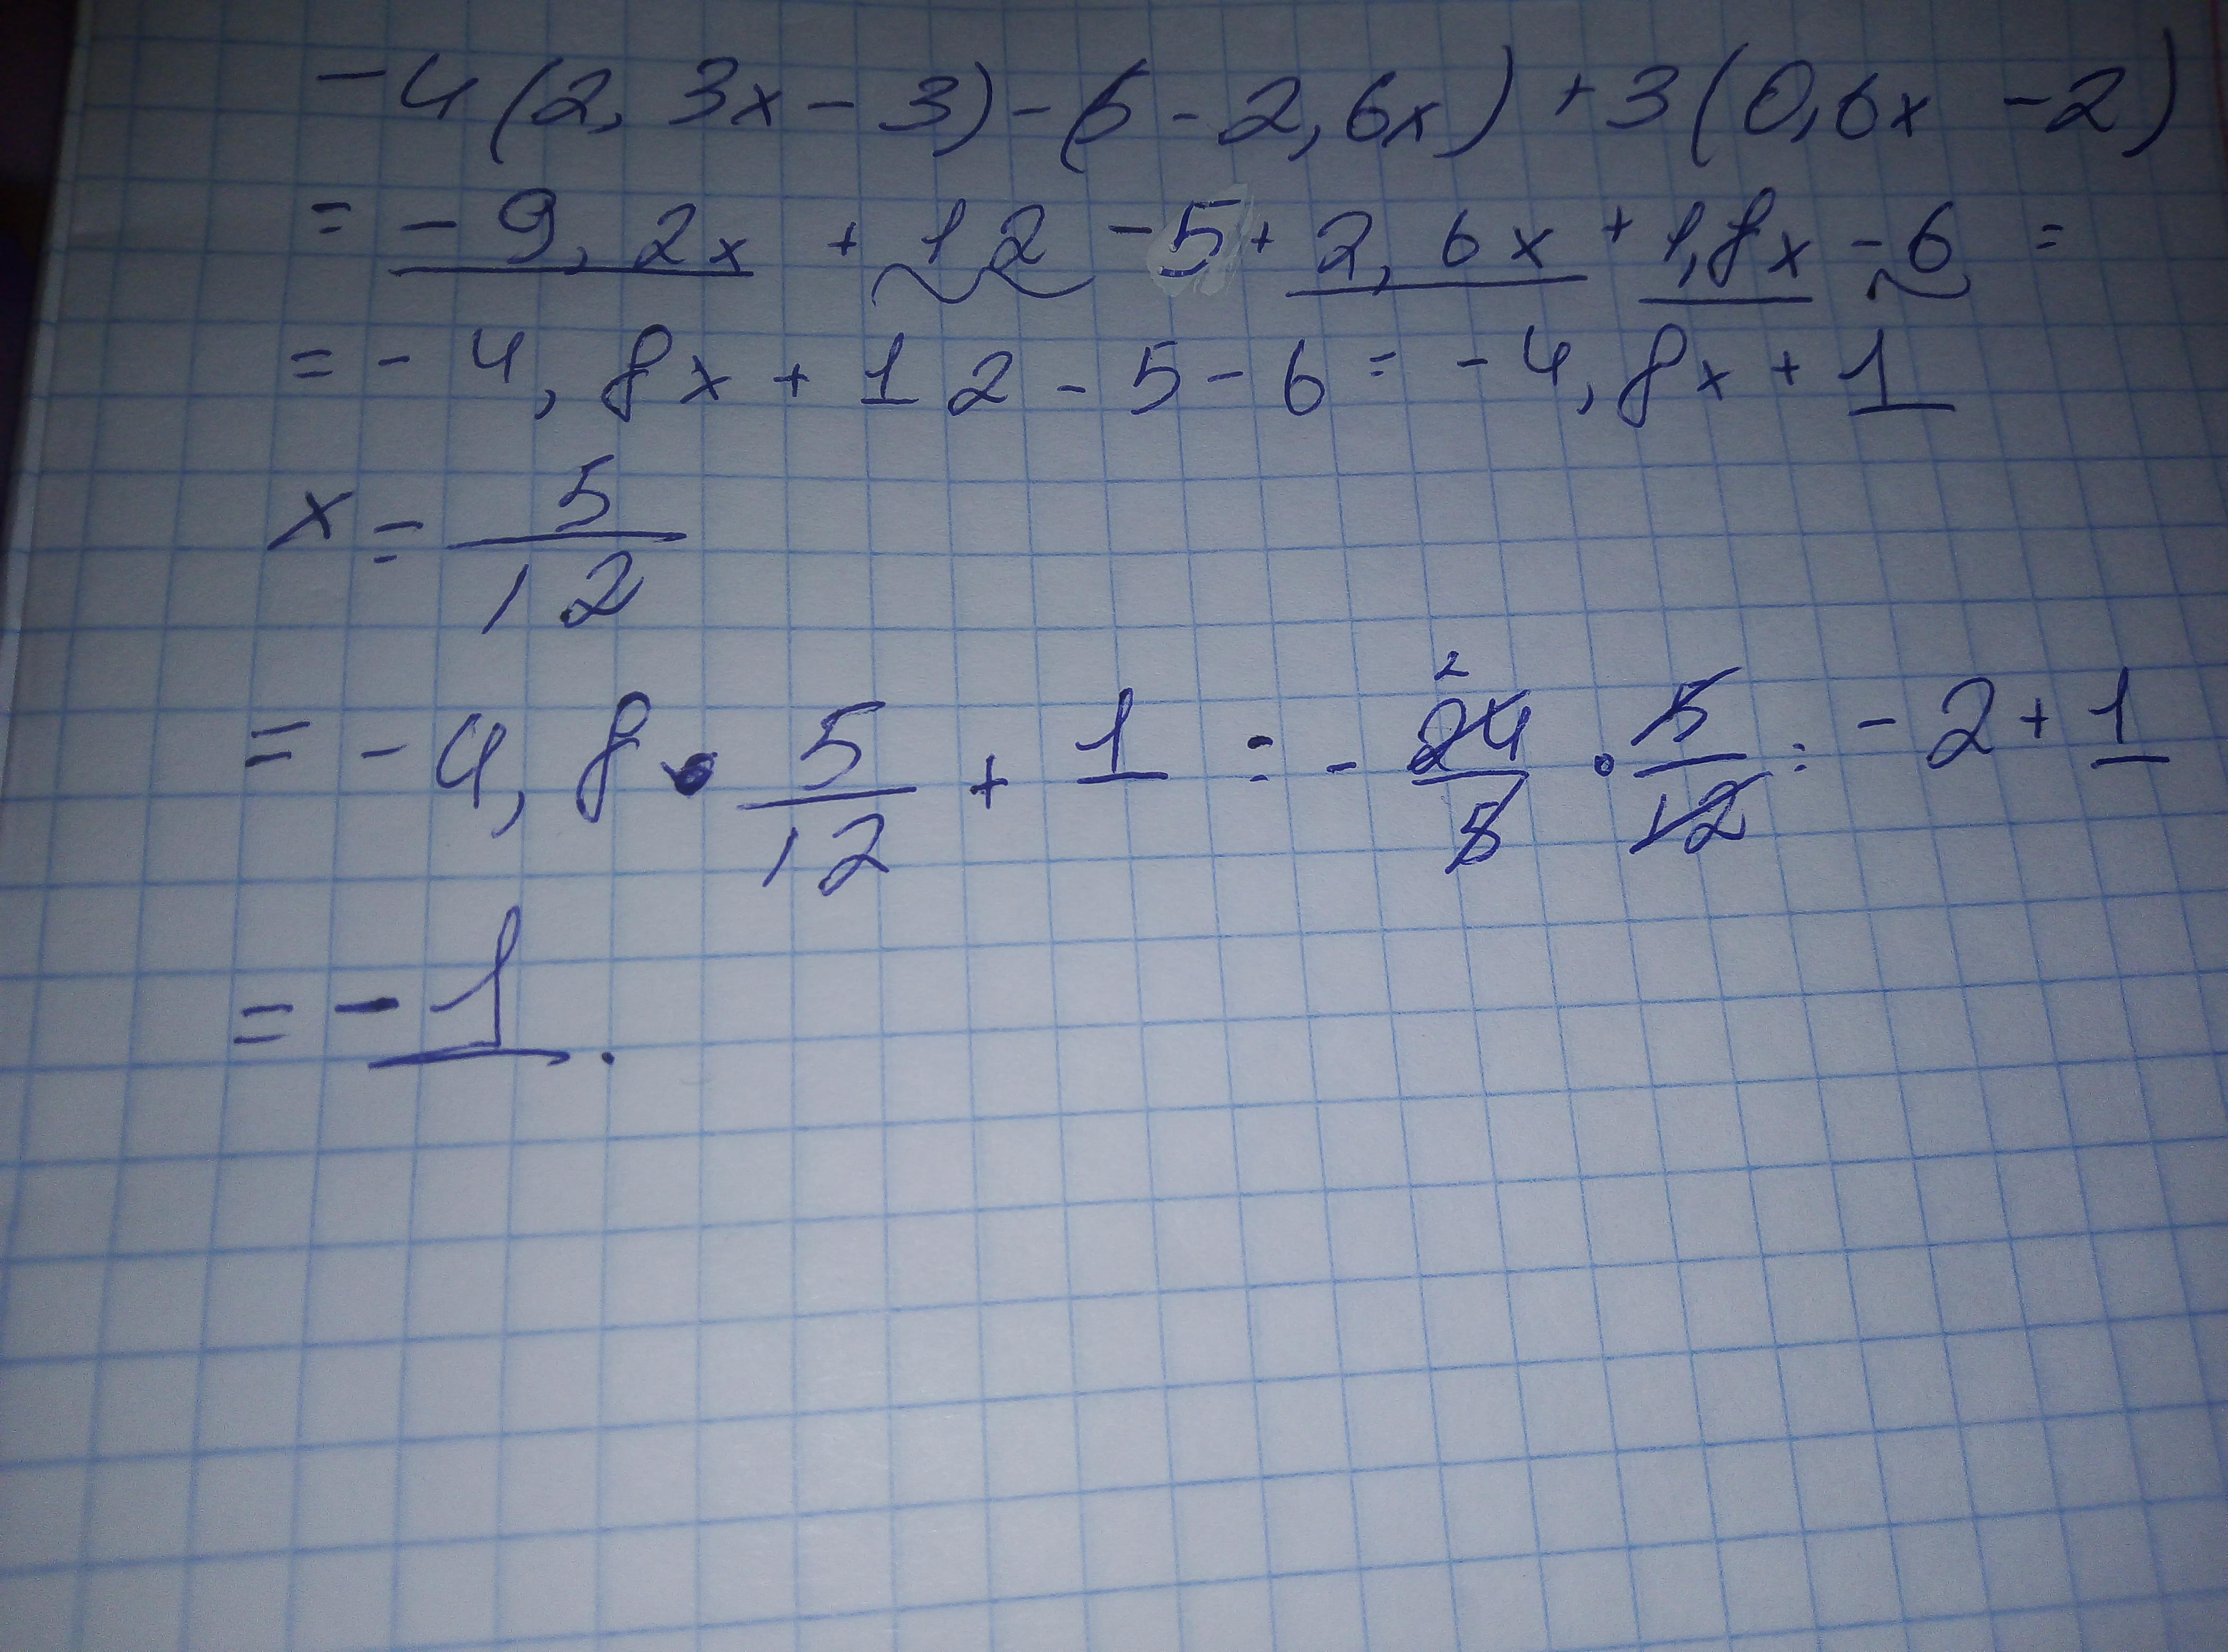 -4(2,3x-3)-(5-2,6x)+3(0,6x-2)
=-9,2x+12-5+2,6x+1,8x-6=
=-4,8x+12-5-6=-4,8x+1
x=5/12
=-4,8·5/12+1=-24/5·5/12=-2+1
=-1.